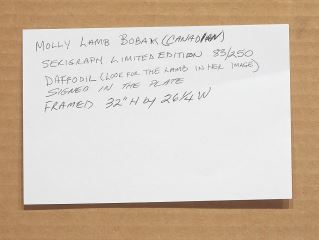 MOLLY LAMB BOBAK (CANADIAN)
SERIGRAPH LIMITED EDITION 83/250
DAFFODIL (LOOK FOR THE LAMB IN HER IMAGE)
SIGNED IN THE PLATE
FRAMED 32" H by 26 1/4 W